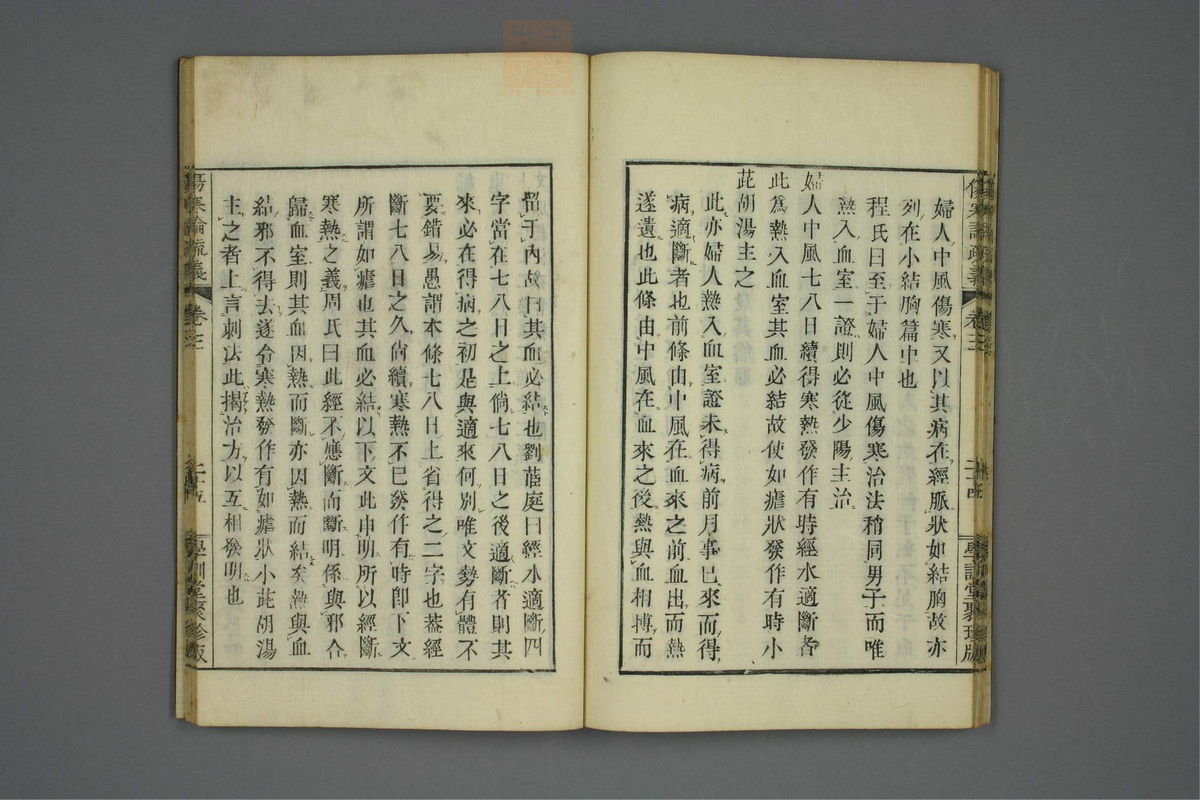 婦人中風傷寒又以其病在經脈狀如結胸故亦
列在小結胸篇中也
程氏曰至于婦人中風傷寒治法稍同男子而唯
熱入血室一證則必從少陽主治
婦人中風七八日續得寒熱發作有時經水適斷者
此為熱入血室其血必結故使如瘧狀發作有時小
茈胡湯主之
此亦婦人熱入血室證未得病前月事已來而得
病適斷者也前條由中風在血來之前血出而熱
遂遺也此條由中風在血來之後熱與血相搏而
留于內故曰其血必結也劉茝庭曰經水適斷四
字當在七八日之上倘七八日之後適斷者則其
來必在得病之初是與適來何別唯文勢有體不
要錯易愚謂本條七八日上省得之二字也蓋經
斷七八日之久尙續寒熱不已發作有時卽下文
所謂如瘧也其血必結以下文此申明所以經斷
寒熱之義周氏曰此經不應斷而斷明係與邪合
歸血室則其血因熱而斷亦因熱而結矣熱與血
結邪不得去遂令寒熱發作有如瘧狀小茈胡湯
主之者上言刺法此揭治方以互相發明也
傷寒論疏義
卷三
二十五
學訓堂聚珍版